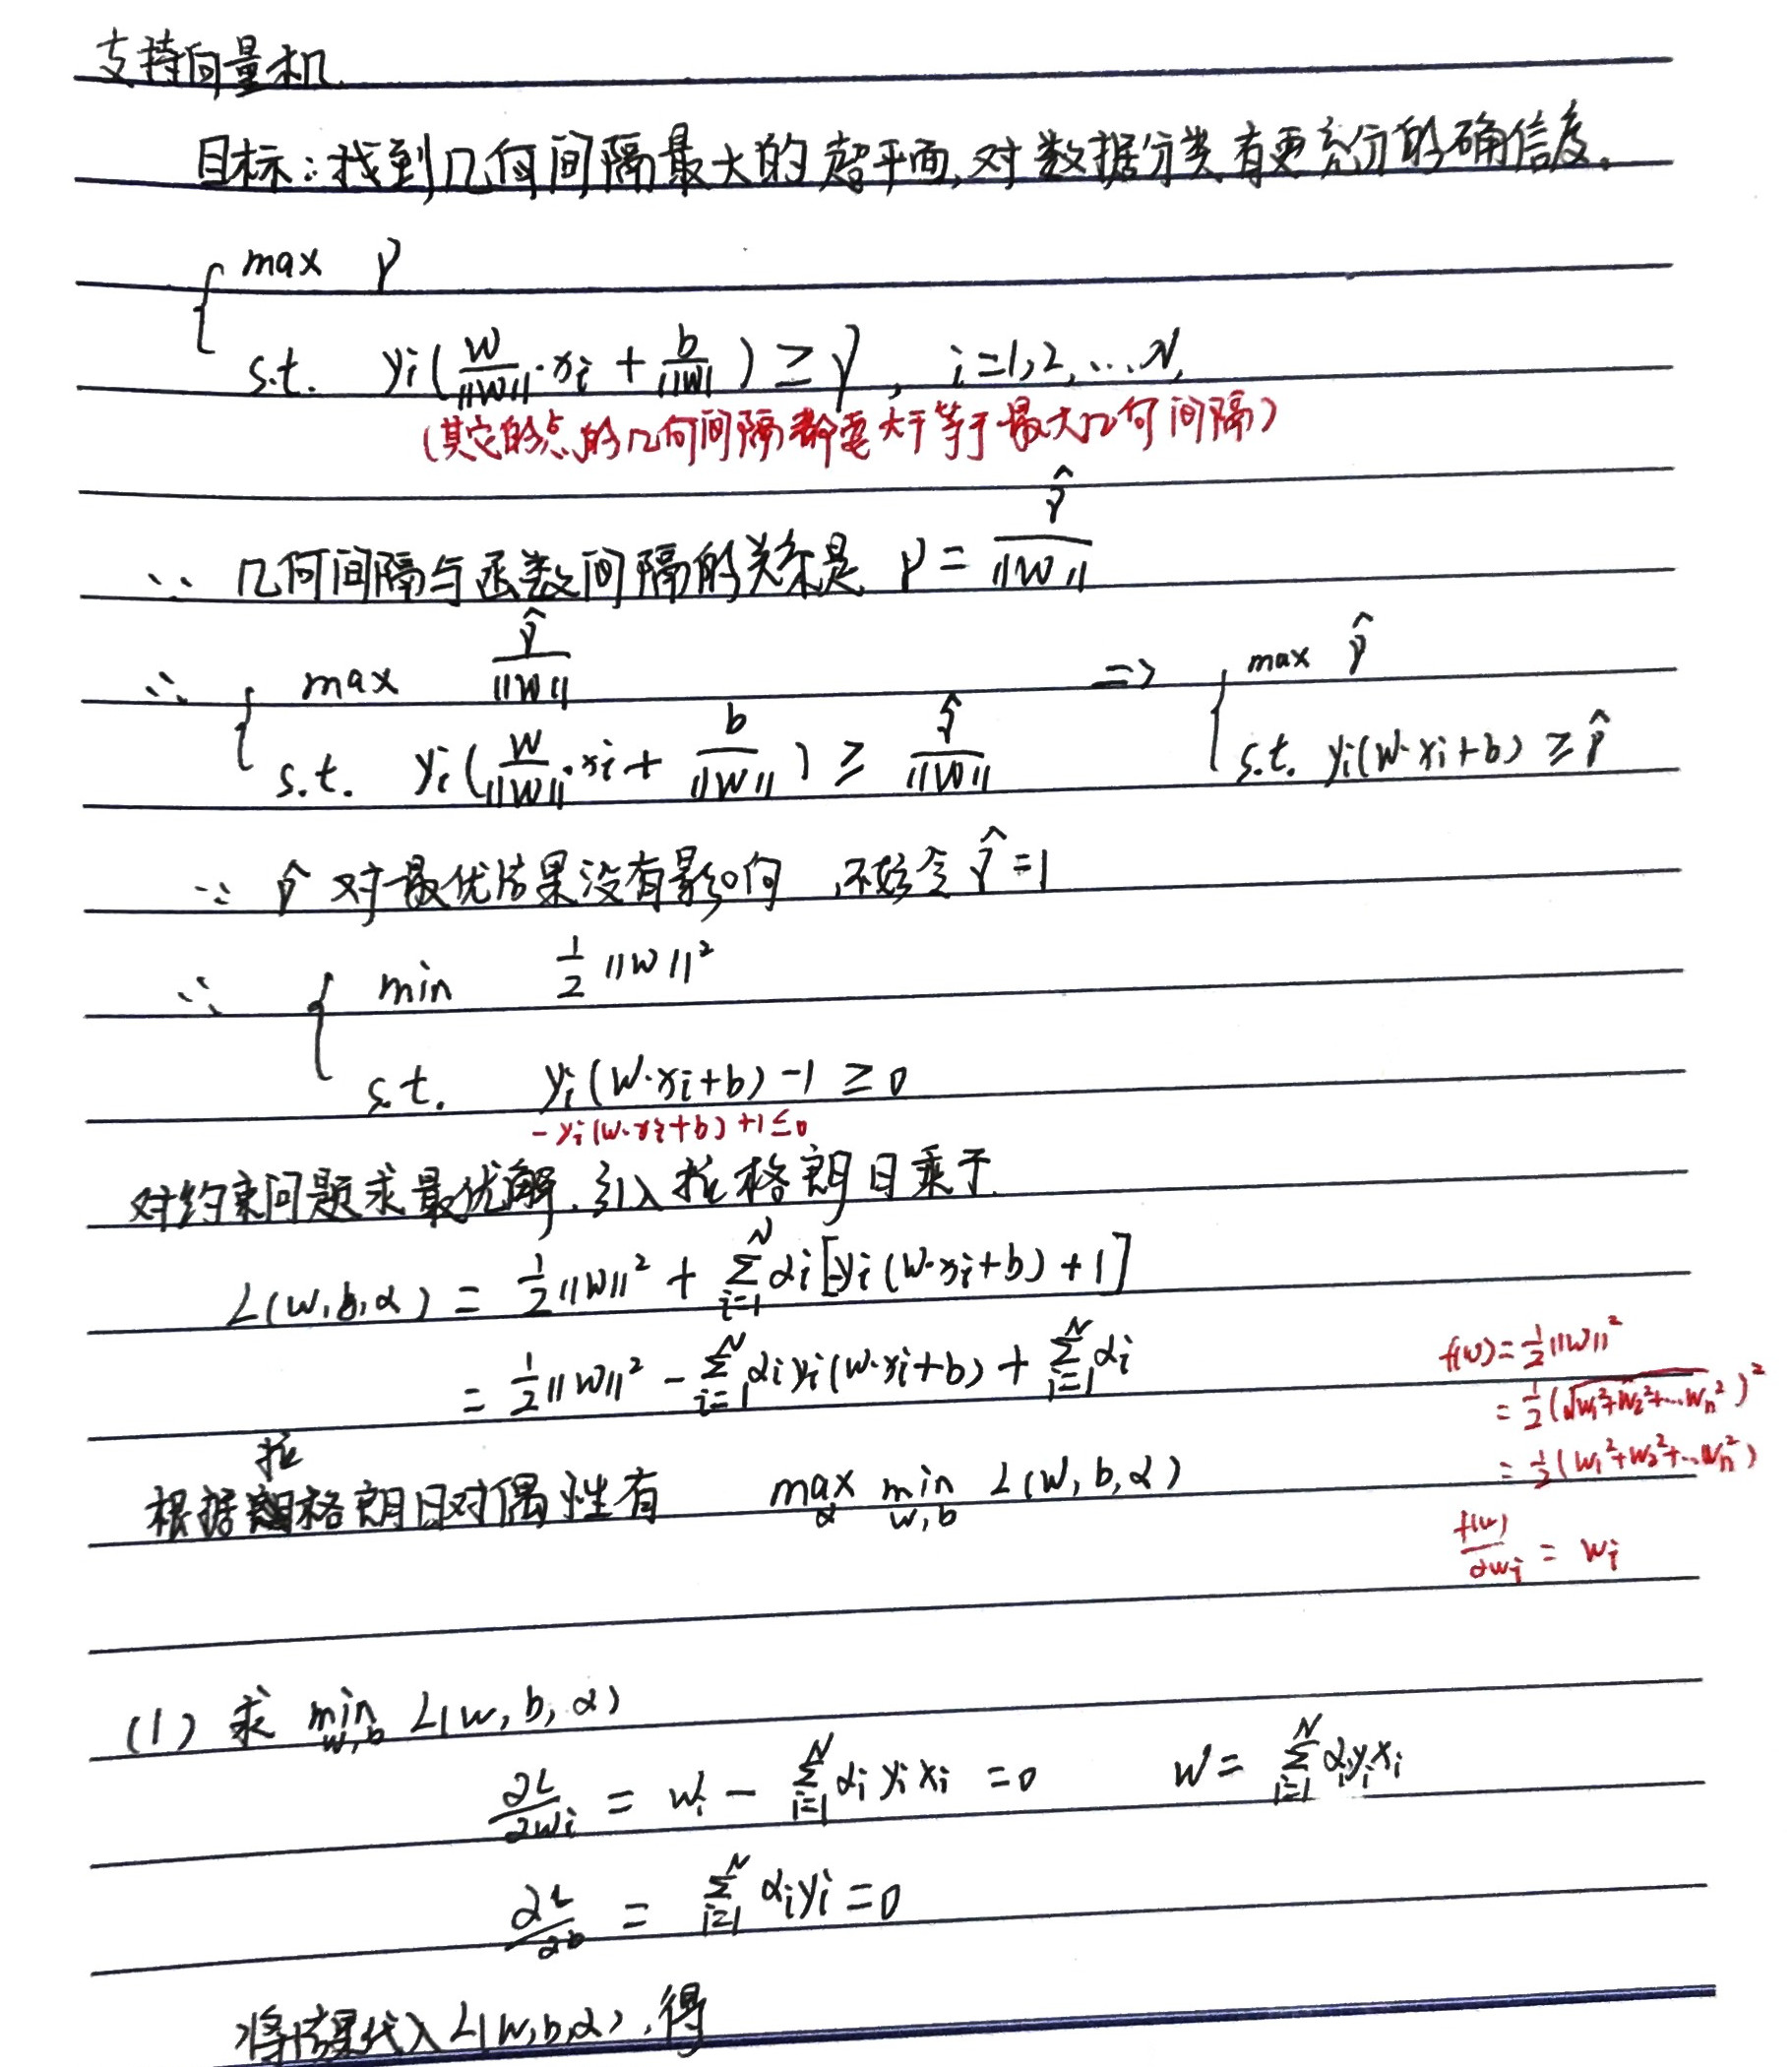 支持向量机
目标：找到几何间隔最大的超平面,对数据分类有更充分的确信度。
max γ
s.t. yi(w/||w||·xi + b/||w||) ≥ γ, i=1,2,...N,
(其它的点的几何间隔都要大于等于最大几何间隔)
∵ 几何间隔与函数间隔的关系是 γ = γ̂/||w||
∴ { max γ̂/||w|| => { max γ̂
s.t. yi(w/||w||·xi + b/||w||) ≥ γ̂/||w|| s.t. yi(w·xi+b) ≥ γ̂
∵ γ̂ 对最优结果没有影响,不妨令 γ̂=1
∴ { min 1/2 ||w||²
s.t. yi(w·xi+b)-1 ≥ 0
-yi(w·xi+b)+1≤0
对约束问题求最优解,引入拉格朗日乘子
L(w,b,α) = 1/2||w||² + Σ_{i=1}^{N} αi[-yi(w·xi+b)+1]
= 1/2||w||² - Σ_{i=1}^{N} αiyi(w·xi+b) + Σ_{i=1}^{N} αi
f(w)=1/2||w||²
= 1/2(√(w₁²+w₂²+...wn²))²
= 1/2(w₁²+w₂²+...wn²)
f(w)/∂wi = wi
根据拉格朗日对偶性有 max_α min_{w,b} L(w,b,α)
(1) 求 min_{w,b} L(w,b,α)
∂L/∂wi = wi - Σ_{i=1}^{N} αi yi xi = 0 w = Σ_{i=1}^{N} αiyixi
∂L/∂b = Σ_{i=1}^{N} αiyi = 0
将结果代入L(w,b,α),得